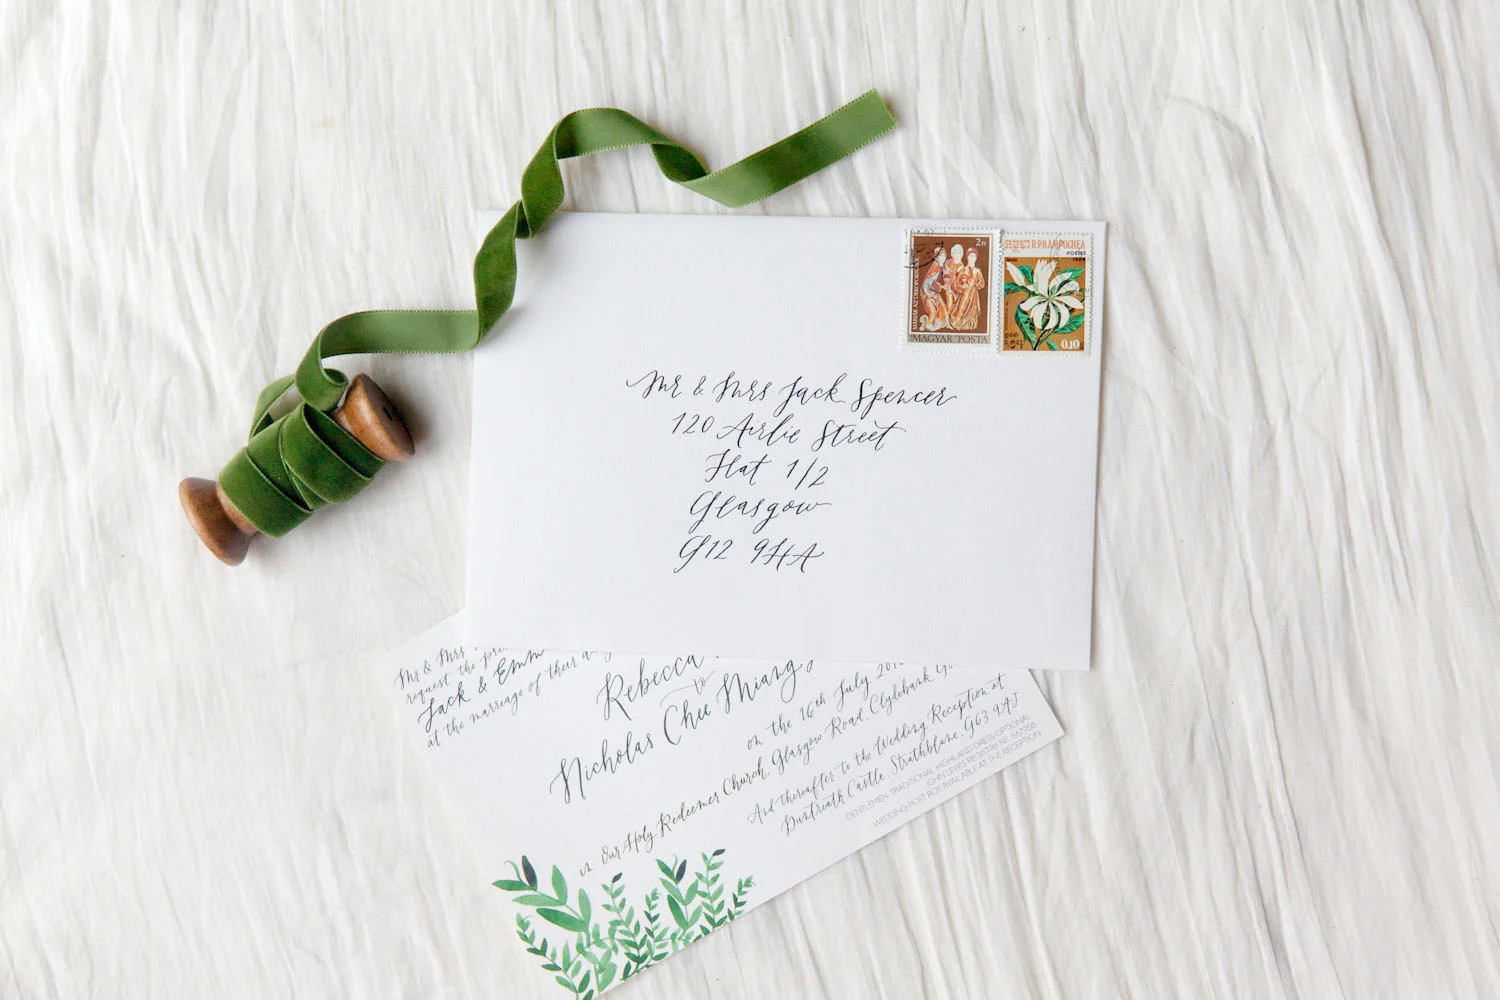 2Ft
MAGYAR POSTA
R.P.KAMPUCHEA
POSTES
1984
0.10
Mr & Mrs Jack Spencer
120 Airlie Street
Flat 1/2
Glasgow
G12 9HA
Mr & Mrs
request the
Jack & Emm
at the marriage of their
Rebecca
to
Nicholas Chee Miang
on the 16th July
in Our Holy Redeemer Church, Glasgow Road, Clydebank
And thereafter to the Wedding Reception at
Duntreath Castle, Strathblane, G63 9AJ
GENTLEMEN: TRADITIONAL HIGHLAND DRESS OPTIONAL
JOHN LEWIS REGISTRY NO.
WEDDING POST BOX AVAILABLE AT THE RECEPTION